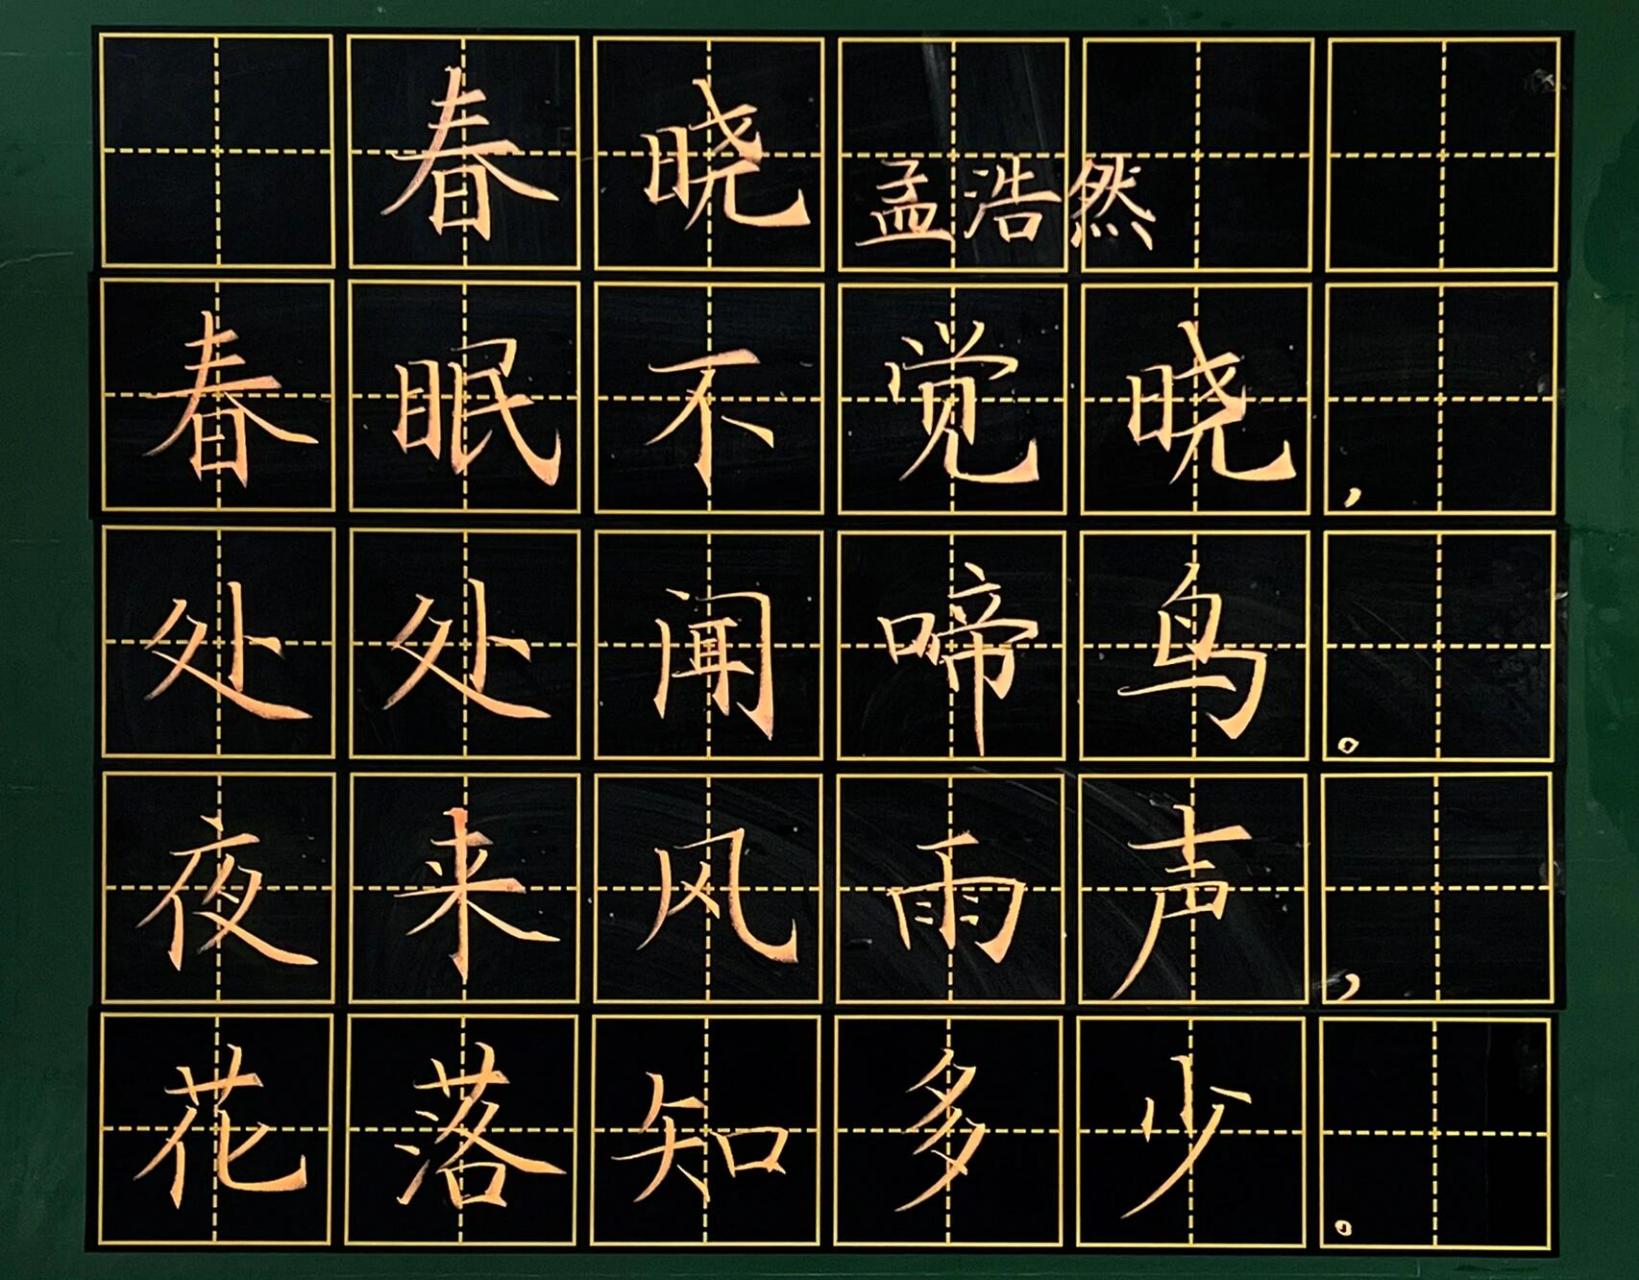 春晓 孟浩然
春眠不觉晓，
处处闻啼鸟。
夜来风雨声，
花落知多少。